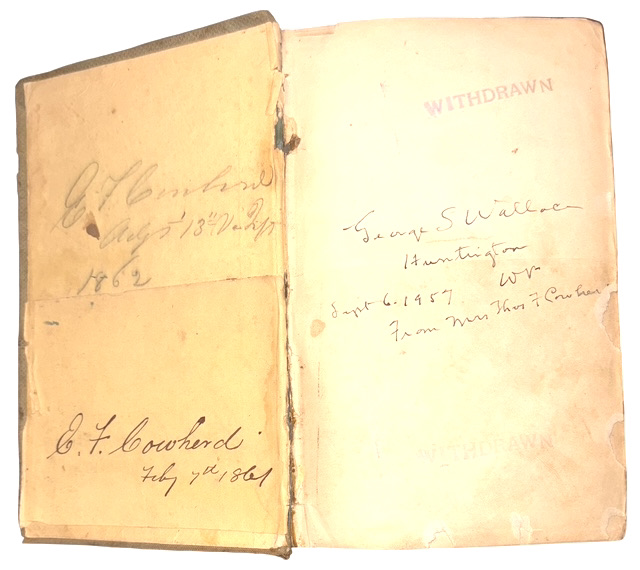 E F Cowherd
Adjt 13th Va Inf
1862
E. F. Cowherd
Feby 7th 1861
WITHDRAWN
George S Wallace
Huntington
W Va
Sept 6. 1957
From Mrs Thos F Cowherd
WITHDRAWN